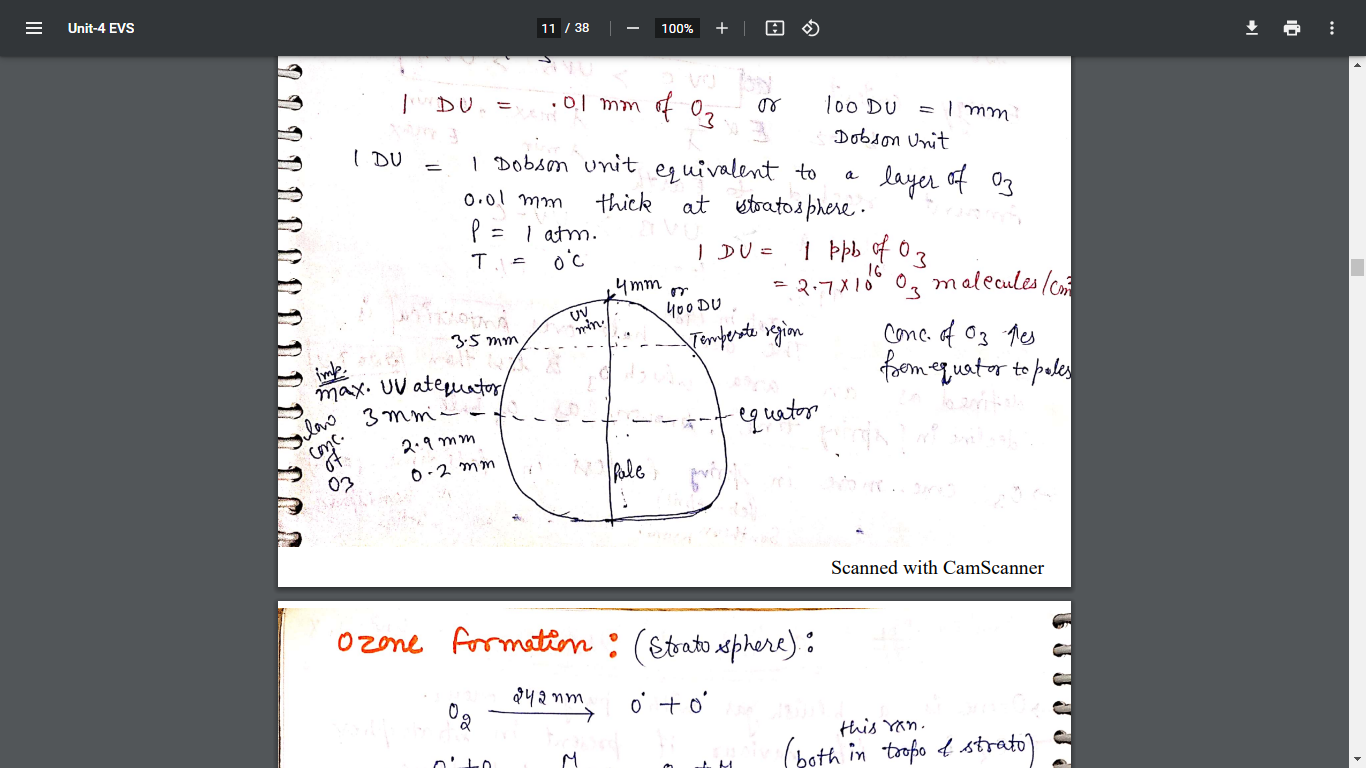 Unit-4 EVS
11 / 38
100%
1 DU = .01 mm of O3 or 100 DU = 1 mm
Dobson Unit
1 DU = 1 Dobson unit equivalent to a layer of O3
0.01 mm thick at stratosphere.
P = 1 atm.
T = 0°C
1 DU = 1 ppb of O3
= 2.7 x 10^16 O3 molecules/cm2
4mm or
400 DU
UV
min.
3.5 mm
Temperate region
Conc. of O3 ↑es
from equator to poles
imp.
max. UV at equator
3 mm
equator
low
conc.
of
O3
2.9 mm
0.2 mm
Pole
Scanned with CamScanner
Ozone formation : (Stratosphere) :
O2 242 nm → O• + O•
this rxn.
(both in tropo & strato)
M